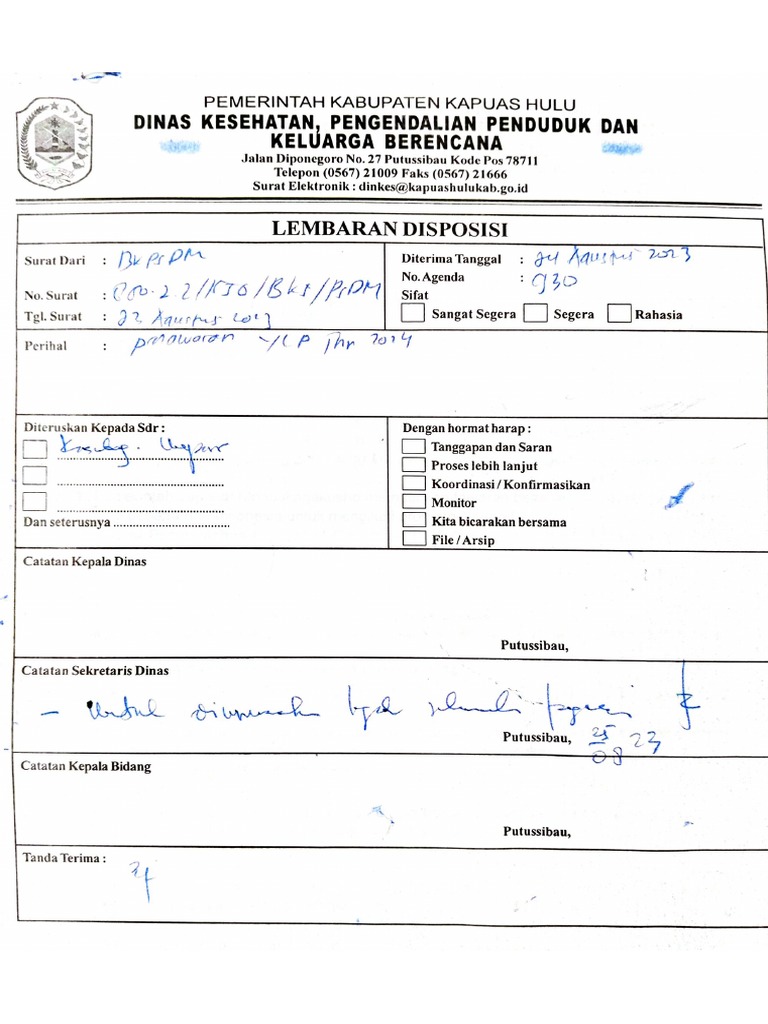 PEMERINTAH KABUPATEN KAPUAS HULU
DINAS KESEHATAN, PENGENDALIAN PENDUDUK DAN
KELUARGA BERENCANA
Jalan Diponegoro No. 27 Putussibau Kode Pos 78711
Telepon (0567) 21009 Faks (0567) 21666
Surat Elektronik : dinkes@kapuashulukab.go.id
LEMBARAN DISPOSISI
Surat Dari : BKPSDM
No. Surat :
Tgl. Surat : 22 Agustus 2023
Diterima Tanggal : 24 Agustus 2023
No. Agenda : 930
Sifat
Sangat Segera Segera Rahasia
Perihal : 2024
Diteruskan Kepada Sdr :
Kasubag.
Dan seterusnya
Dengan hormat harap :
Tanggapan dan Saran
Proses lebih lanjut
Koordinasi / Konfirmasikan
Monitor
Kita bicarakan bersama
File / Arsip
Catatan Kepala Dinas
Putussibau,
Catatan Sekretaris Dinas
- Untuk
Putussibau, 25/08 23
Catatan Kepala Bidang
Putussibau,
Tanda Terima :